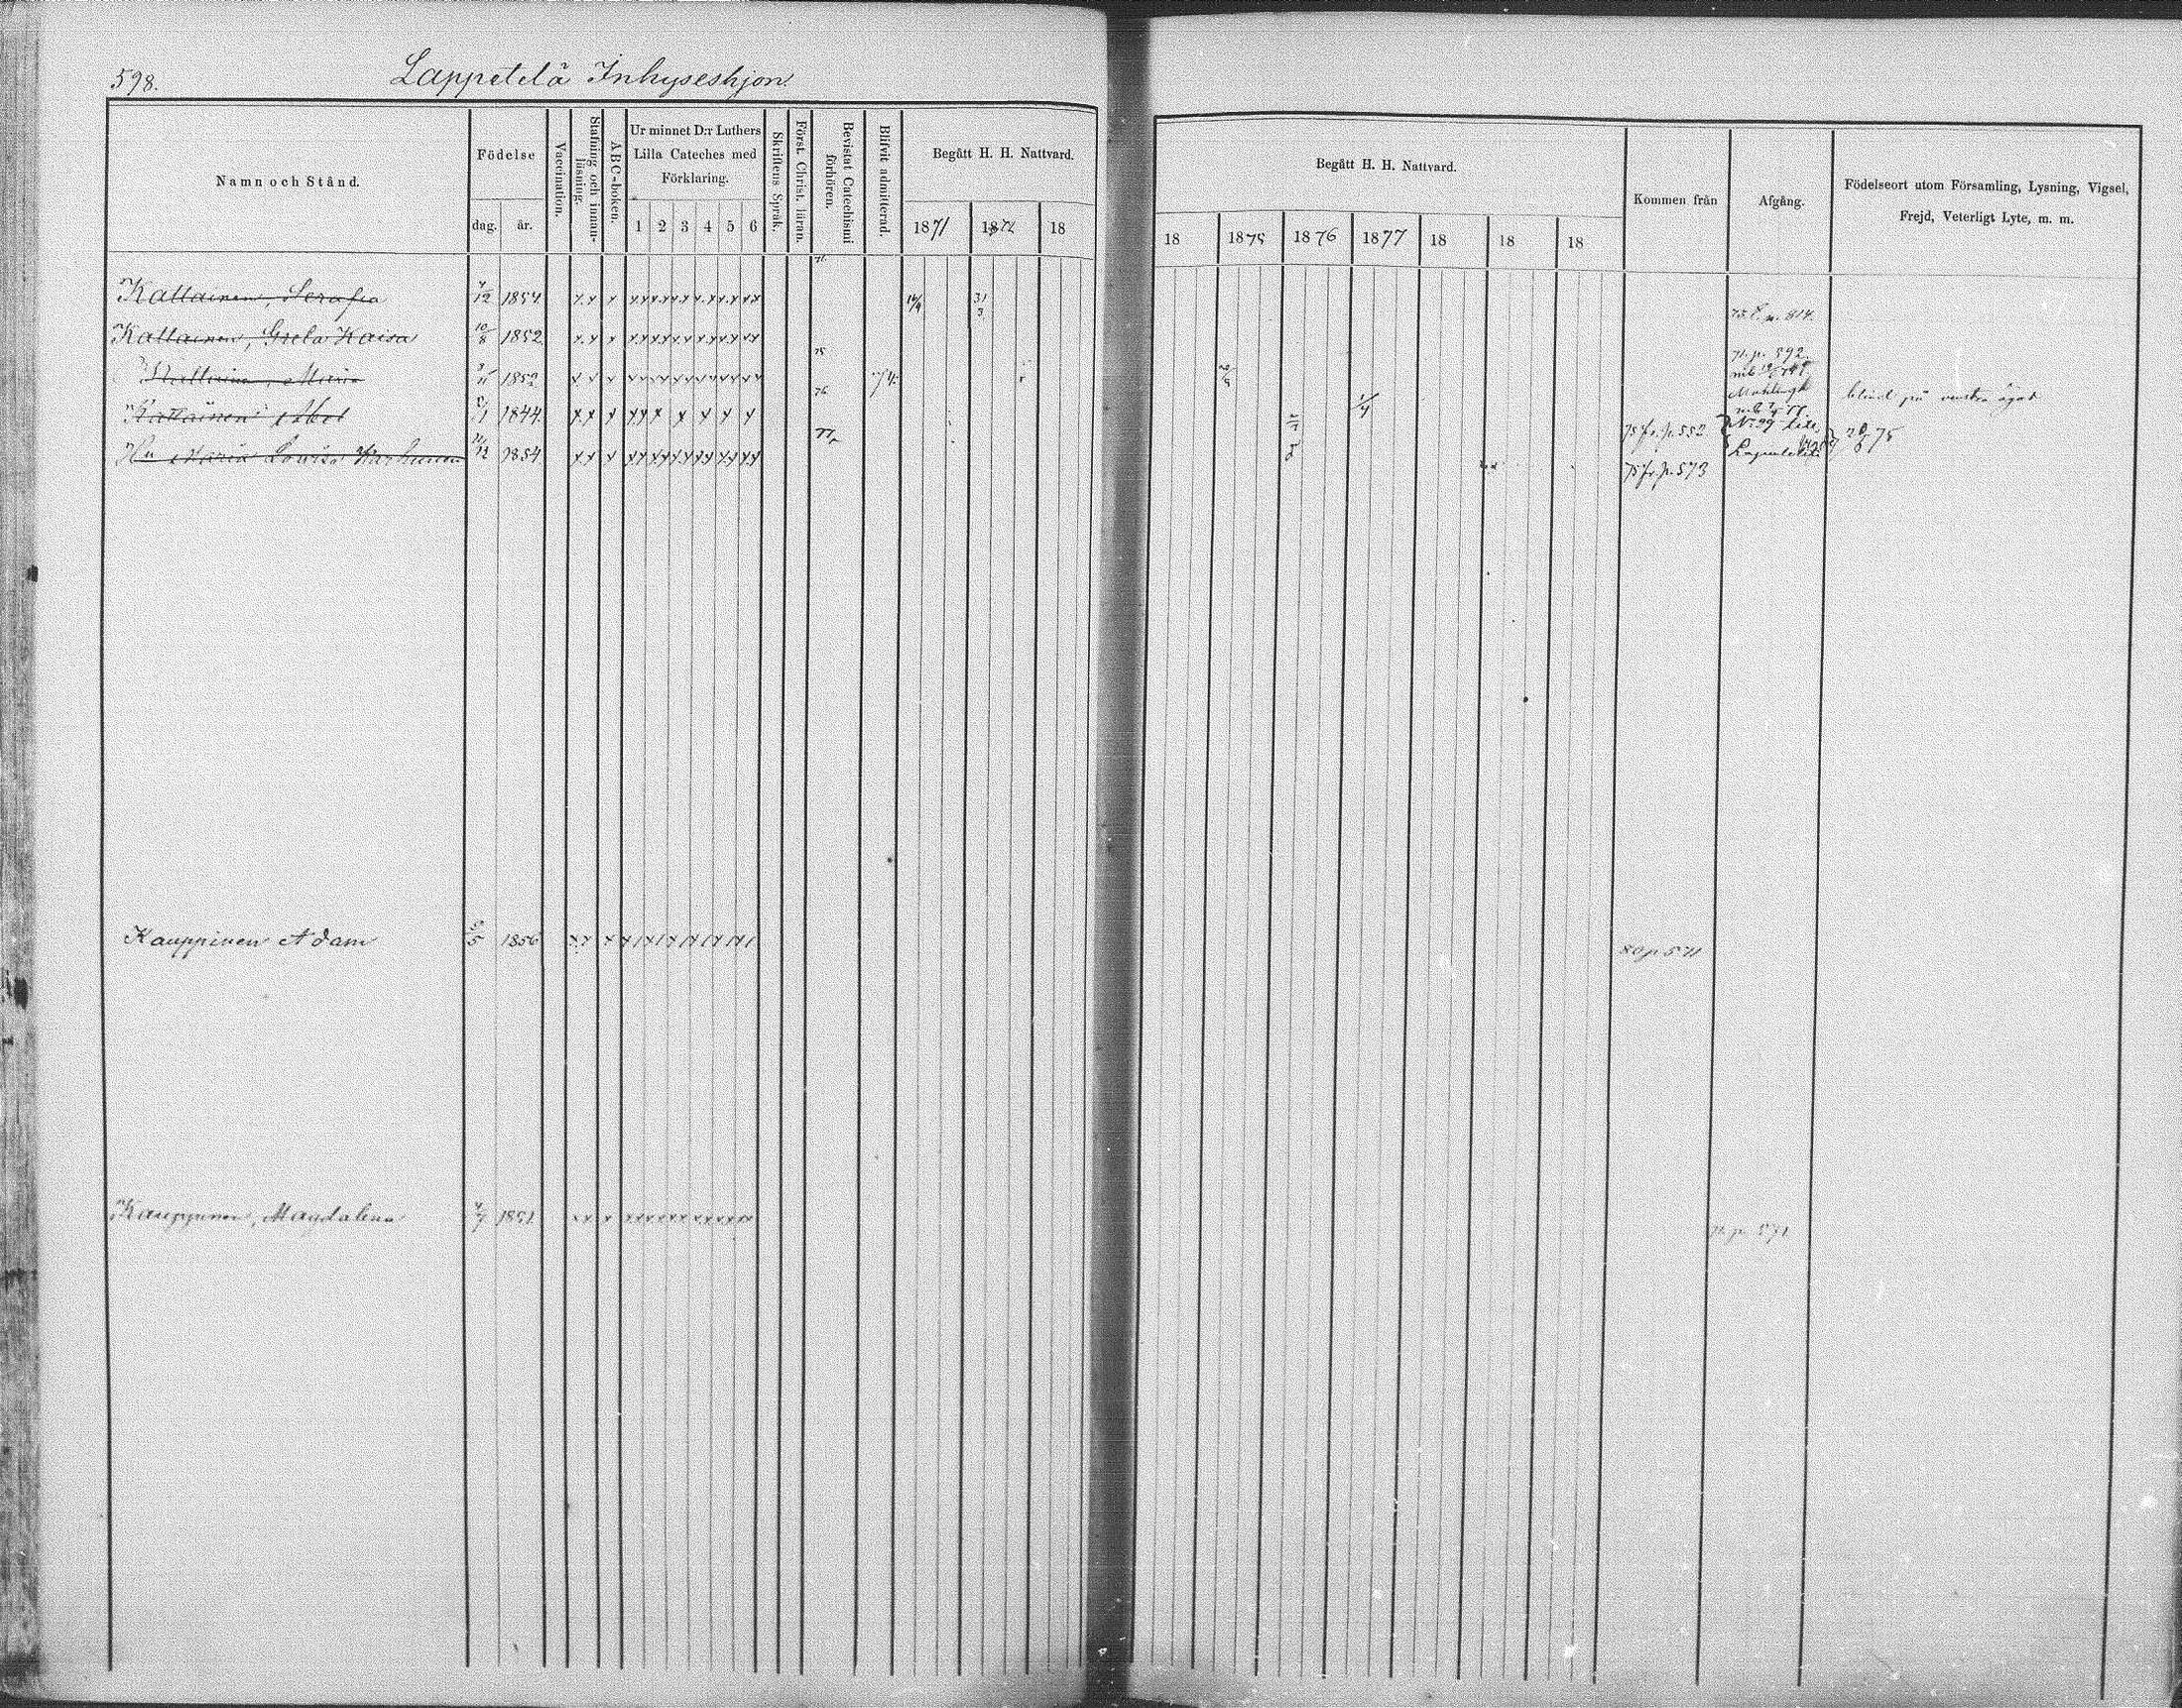 598. Lappetelä Inhyseshjon.
Namn och Stånd.
Födelse
dag. år.
Vaccination.
Stafning och innan-
läsning.
ABC-boken.
Ur minnet D:r Luthers
Lilla Cateches med
Förklaring.
1 2 3 4 5 6
Skriftens Språk.
Först. Christ. läran.
Bevistat Catechismi
förhören.
Blifvit admitterad.
Begått H. H. Nattvard.
1871 1872 18
Begått H. H. Nattvard.
18 1875 1876 1877 18 18 18
Kommen från
Afgång.
Födelseort utom Församling, Lysning, Vigsel,
Frejd, Veterligt Lyte, m. m.
76
Kattainen, Serafia 4/12 1854 x x x x x x x x x x x x x x x 31/3
Kattainen, Greta Kaisa 10/8 1852 x x x x x x x x x x x x x x x
75
71. p. 592.
Maria 1852 x x x x x x x x x x x x x x x
76
blind på venstra ögat
Kattainen Abel 1844 x x x x x x x x x x x
75 fr. p. 552
77
Hu Maria Lovisa Karhunen 1854 x x x x x x x x x x x x x x x
75 fr. p. 573
Kauppinen Adam 1856
80 p 571
Kauppinen, Magdalena 1851 x x x x x x x x x x x x x x x
p. 571